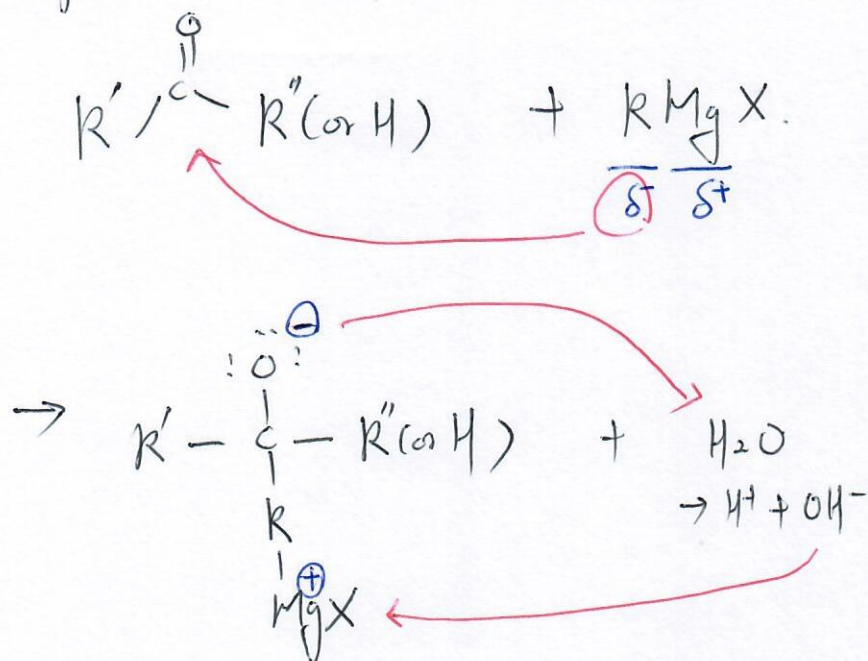 O
R' C R"(or H) + RMgX.
δ- δ+
⊖
:Ö:
→ R' — C — R"(or H) + H₂O
R → H⁺ + OH⁻
⊕
MgX